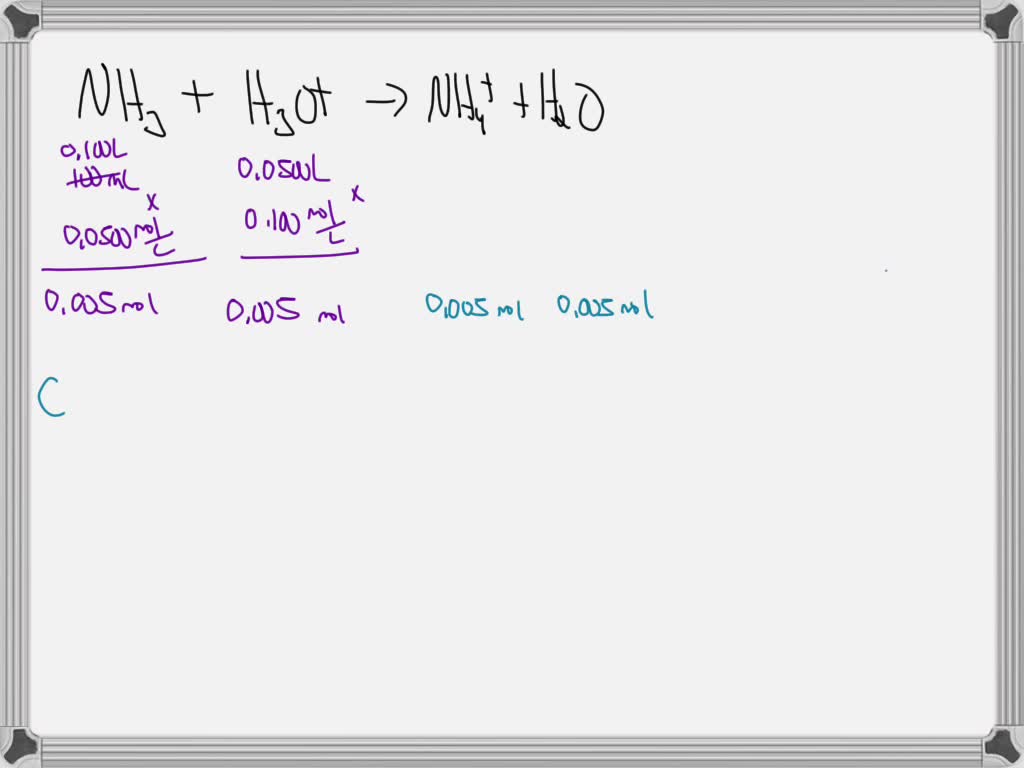 NH₃ + H₃O+ → NH₄⁺ + H₂O
0.100L
100mL
x
0.0500 mol/L
0.0500L
x
0.100 mol/L
0.005 mol 0.005 mol 0.005 mol 0.005 mol
C